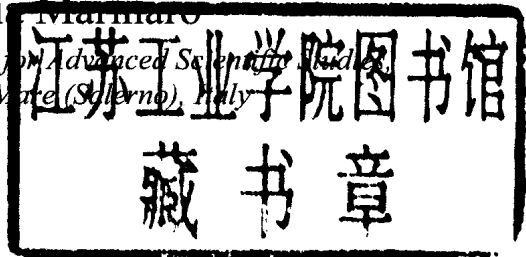 Marinaro
for Advanced Scientific Studies,
Mare (Salerno), Italy
江苏工业学院图书馆
藏书章